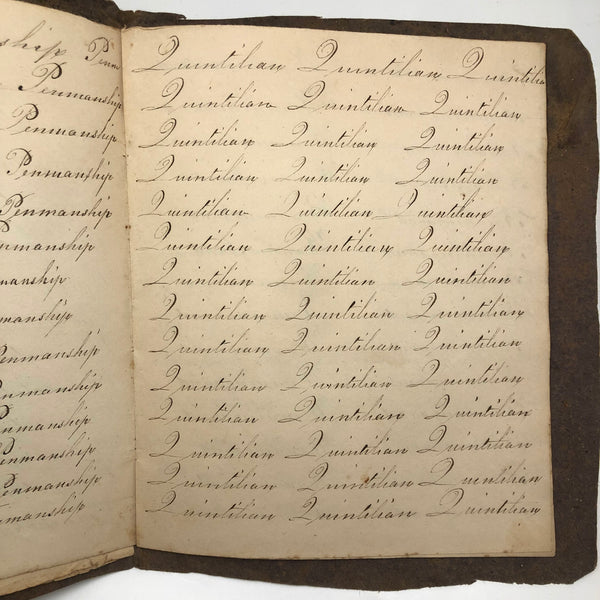 Penmanship
Penmanship
Penmanship
Penmanship
Penmanship
Penmanship
Penmanship
Penmanship
Penmanship
Penmanship
Penmanship
Penmanship
Quintilian Quintilian Quintilia
Quintilian Quintilian Quintilian
Quintilian Quintilian Quintilian
Quintilian Quintilian Quintilian
Quintilian Quintilian Quintilian
Quintilian Quintilian Quintilian
Quintilian Quintilian Quintilian
Quintilian Quintilian Quintilian
Quintilian Quintilian Quintilian
Quintilian Quintilian Quintilian
Quintilian Quintilian Quintilian
Quintilian Quintilian Quintilian
Quintilian Quintilian Quintilian
Quintilian Quintilian Quintilian